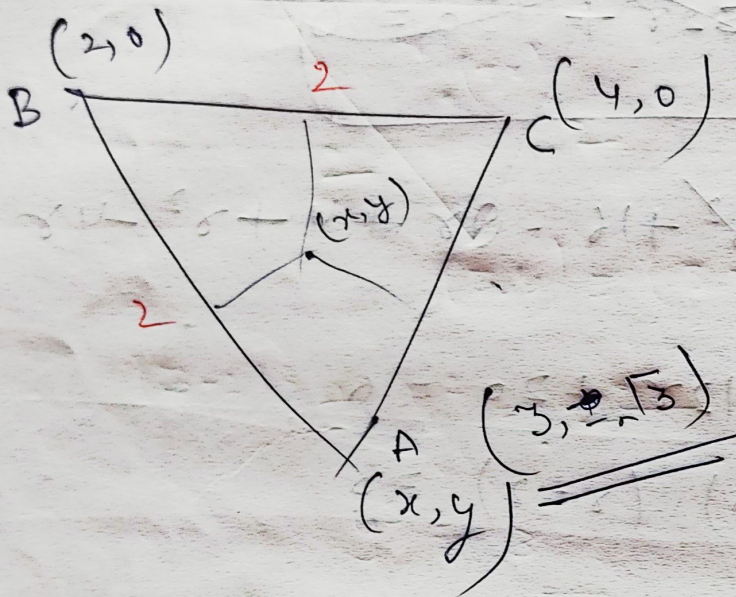 (2,0)
B
2
C (4,0)
(x,y)
2
A
(x,y)